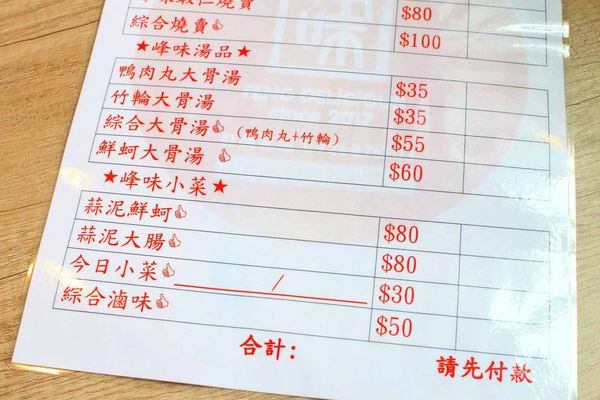 $80
綜合燒賣👍 $100
★峰味湯品★
鴨肉丸大骨湯 $35
竹輪大骨湯 $35
綜合大骨湯👍 (鴨肉丸+竹輪) $55
鮮蚵大骨湯👍 $60
★峰味小菜★
蒜泥鮮蚵👍 $80
蒜泥大腸👍 $80
今日小菜👍 / $30
綜合滷味👍 $50
合計： 請先付款